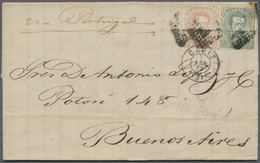 via Portugal
CADIZ
Sres de Antonio
Potosí 148
Buenos Aires